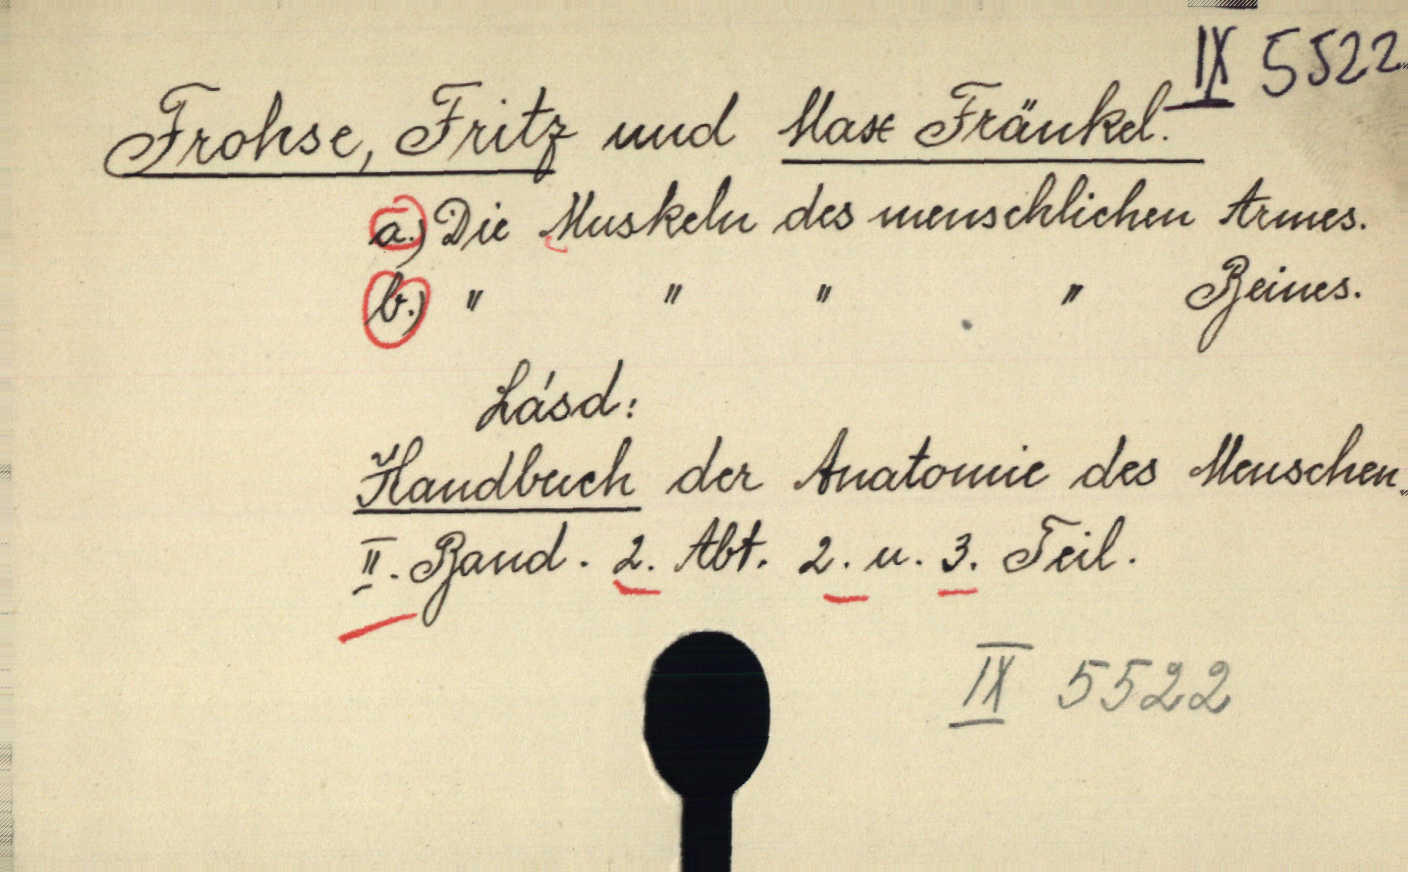 IX 5522
Frohse, Fritz und Max Fränkel.
a.) Die Muskeln des menschlichen Armes.
b.) " " " " Beines.
Lásd:
Handbuch der Anatomie des Menschen.
II. Band. 2. Abt. 2. u. 3. Teil.
IX 5522